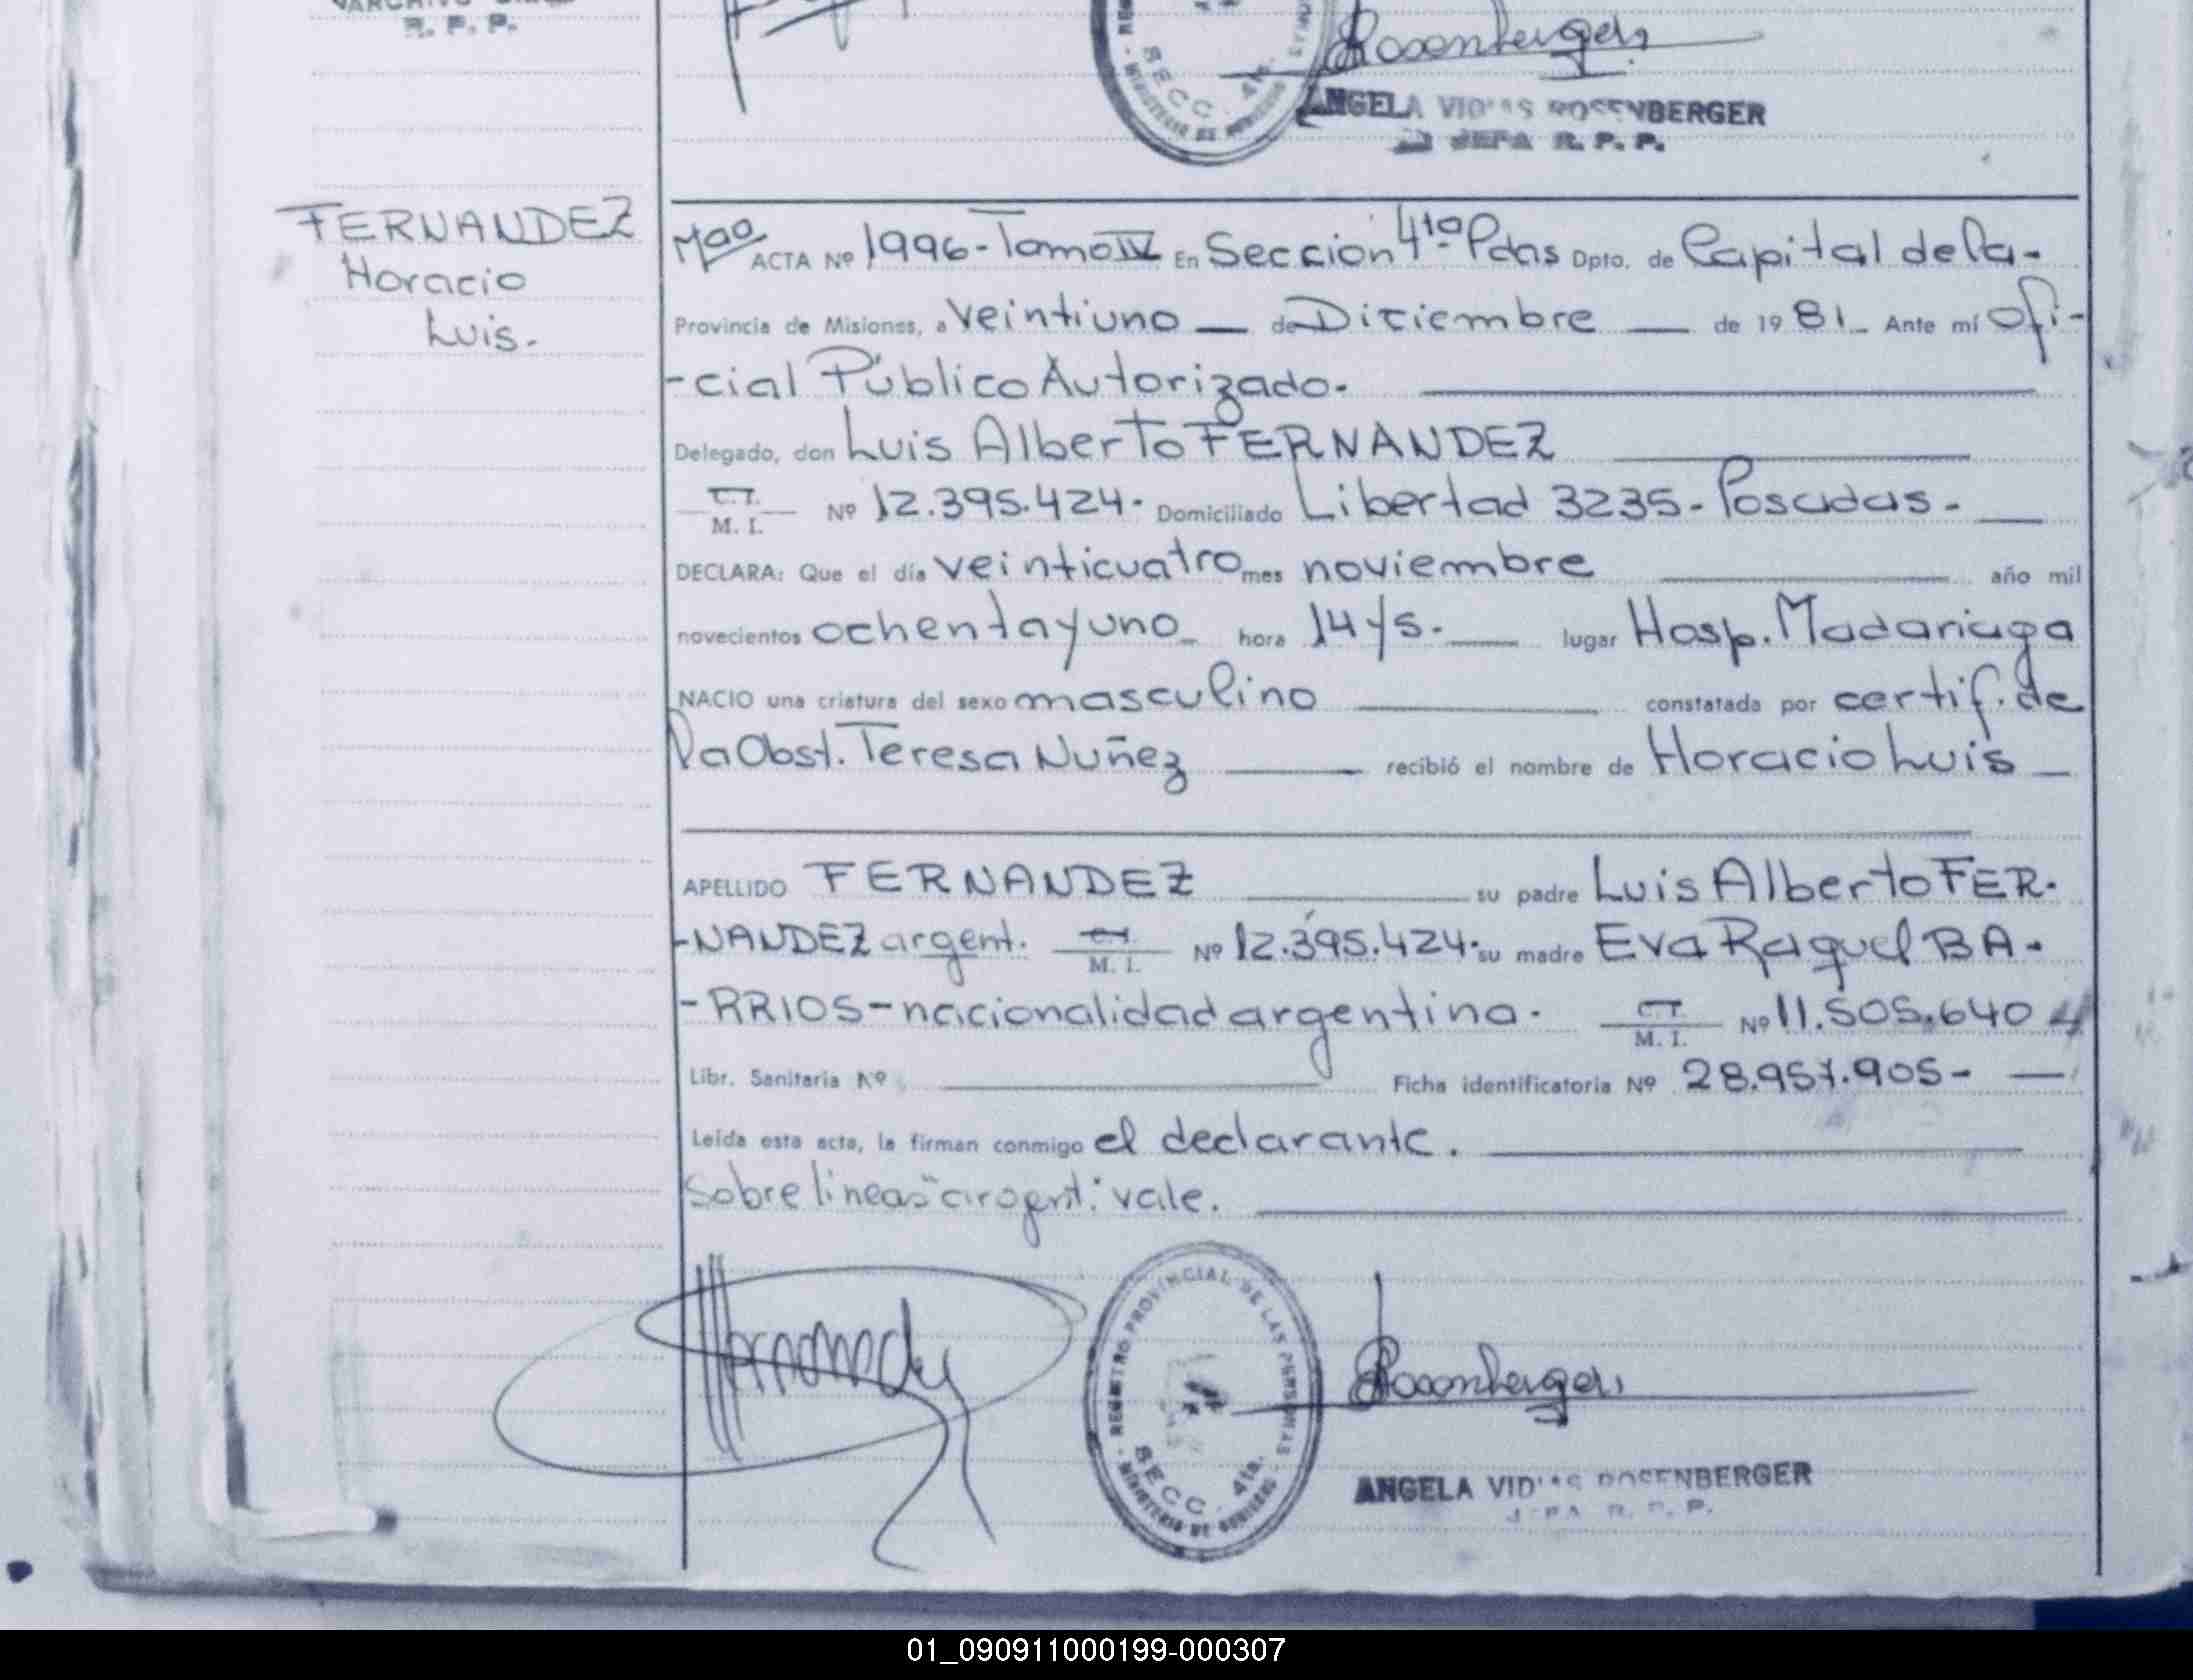 R. P. P.
Rosenberger
SECC. 4ta.
MINISTERIO DE GOBIERNO
ANGELA VIDAS ROSENBERGER
JEFA R. P. P.
FERNANDEZ
Horacio
Luis.-
ACTA Nº 1996- Tomo IV En Sección 4ta Pdas Dpto. de Capital de la-
Provincia de Misiones, a veintiuno — de Diciembre — de 1981- Ante mí Ofi-
-cial Público Autorizado.
Delegado, don Luis Alberto FERNANDEZ
C.I. M. I. Nº 12.395.424- Domiciliado Libertad 3235- Posadas.-
DECLARA: Que el día veinticuatro mes noviembre año mil
novecientos ochenta y uno hora 14 y 5.- lugar Hosp. Madariaga
NACIO una criatura del sexo masculino constatada por certif. de
la Obst. Teresa Nuñez recibió el nombre de Horacio Luis —
APELLIDO FERNANDEZ su padre Luis Alberto FER-
-NANDEZ argent. C.I. M. I. Nº 12.395.424- su madre Eva Raquel BA-
-RRIOS-nacionalidad argentina. C.I. M. I. Nº 11.505.640
Libr. Sanitaria Nº Ficha identificatoria Nº 28.957.905-
Leída esta acta, la firman conmigo el declarante.
Sobre lineas "argent." vale.
REGISTRO PROVINCIAL DE LAS PERSONAS
SECC. 4ta.
MINISTERIO DE GOBIERNO
Rosenberger
ANGELA VIDAS ROSENBERGER
JEFA R. P. P.
01_090911000199-000307